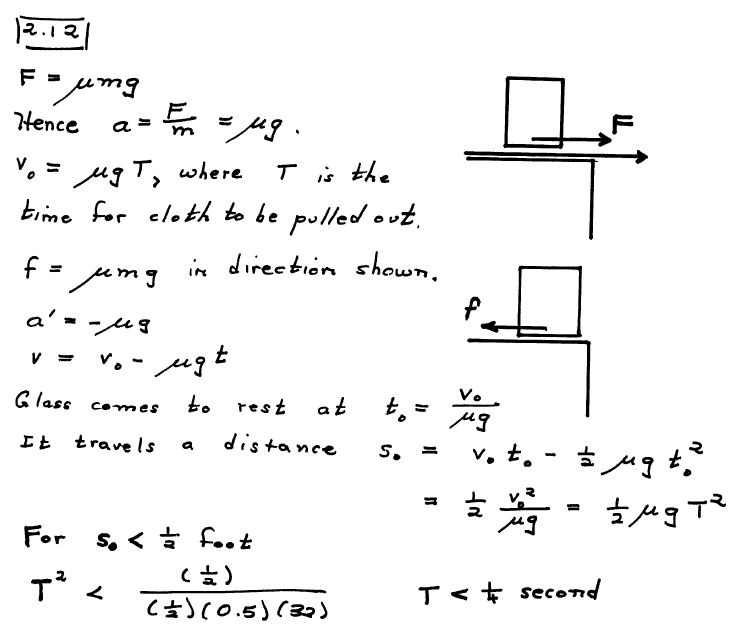 2.12
F = μmg
Hence a = F/m = μg.
F
v₀ = μgT, where T is the
time for cloth to be pulled out.
f = μmg in direction shown.
f
a' = -μg
v = v₀ - μgt
Glass comes to rest at t₀ = v₀/μg
It travels a distance s₀ = v₀t₀ - ½ μg t₀²
= ½ v₀²/μg = ½ μg T²
For s₀ < ½ foot
T² < (½)/(½)(0.5)(32) T < ¼ second